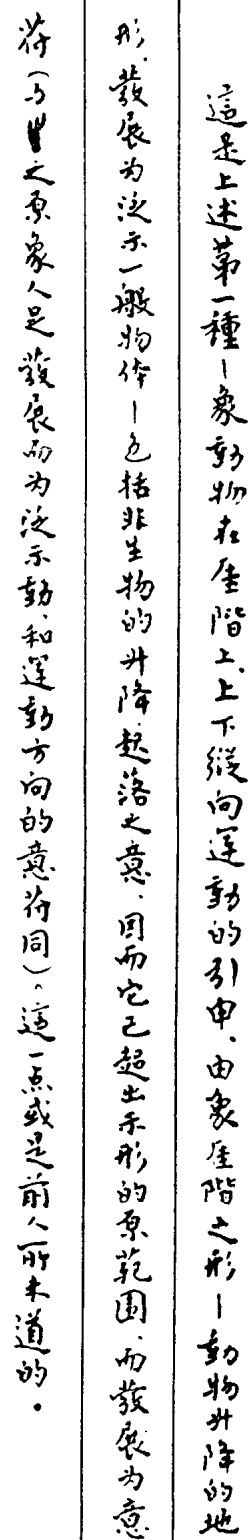 這是上述第一種—象動物在崖階上、上下縱向運動的引申、由象崖階之形—動物升降的地
形、發展为泛示一般物体—包括非生物的升降、起落之意、因而它已超出示形的原範围、而發展为意
符(与㞢之原象人足發展而为泛示動、和運動方向的意符同)。這一点或是前人所未道的。